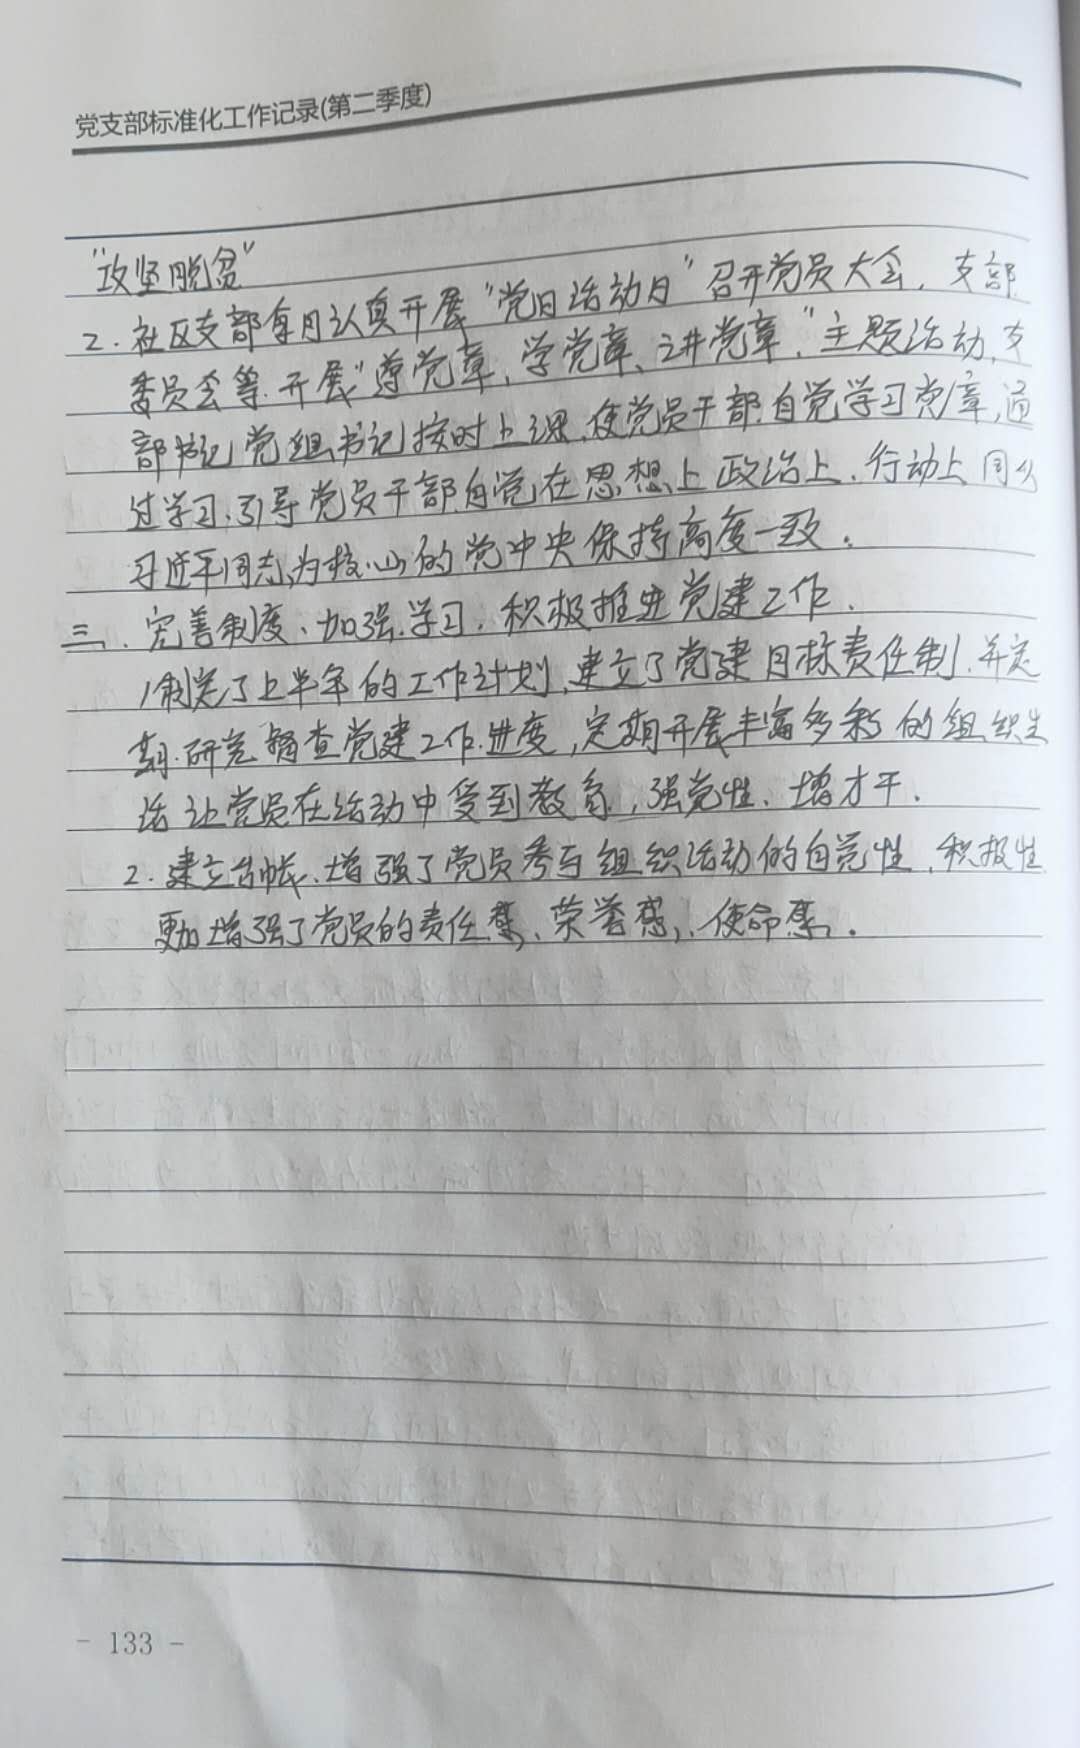 党支部标准化工作记录(第二季度)
"攻坚脱贫"
2.社区支部每月认真开展"党日活动日"召开党员大会,支部
委员会等.开展"遵党章、学党章、讲党章,"主题活动,支
部书记党组书记按时上课,使党员干部自觉学习党章,通
过学习,引导党员干部自觉在思想上政治上,行动上同以
习近平同志为核心的党中央保持高度一致。
三、完善制度、加强学习,积极推进党建工作.
1制定了上半年的工作计划,建立了党建目标责任制,并定
期研究督查党建工作进度,定期开展丰富多彩的组织生
活让党员在活动中受到教育,强党性、增才干.
2.建立台帐,增强了党员参与组织活动的自觉性,积极性
更加增强了党员的责任感、荣誉感、使命感。
- 133 -